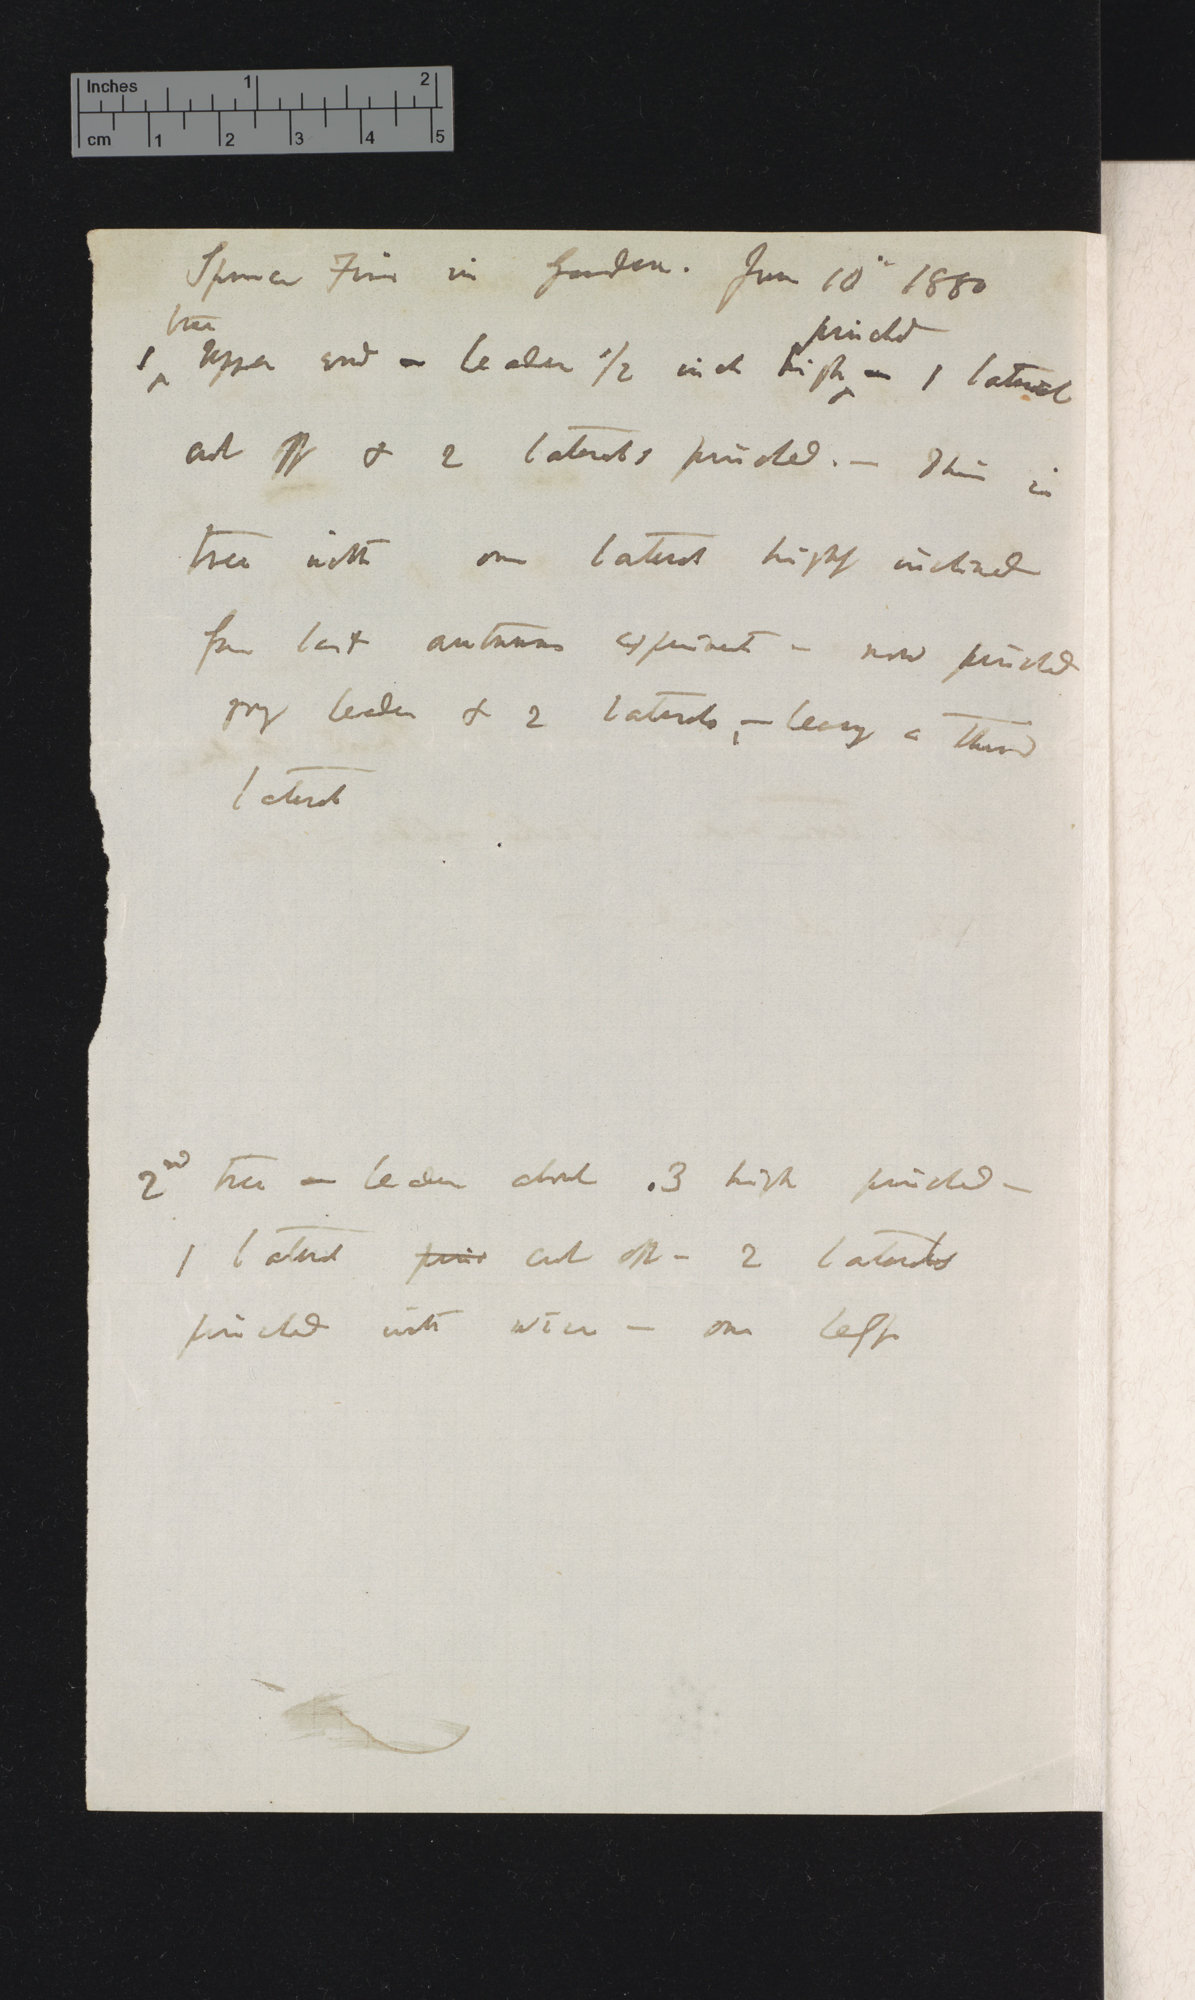 Inches 1 2
cm 1 2 3 4 5
Spruce Firs in Garden. June 10th 1880
tree pinched
1 Upper end — leader 1/2 inch high — 1 lateral
cut off & 2 laterals pinched. — This is
tree with one lateral highly inclined
from last autumns experiment — now pinched
leader & 2 laterals, — leaving a third
lateral
2nd tree — leader about .3 high pinched —
1 lateral pin cut off — 2 laterals
pinched with wire — one left